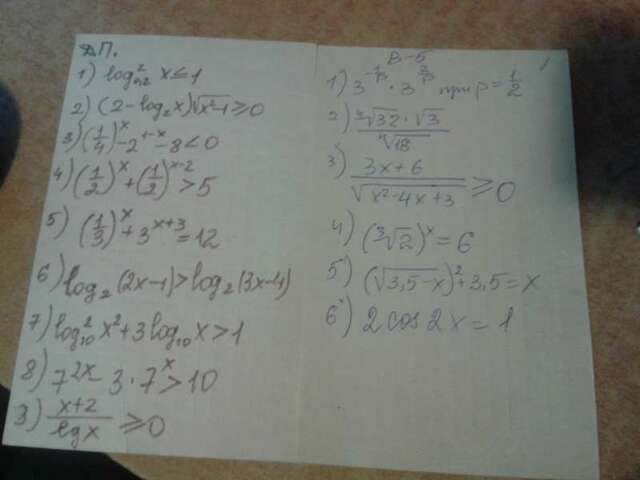 Д.П.
1) log²₀,₂ x ≤ 1
2) (2 - log₂x)√x²-1 ≥ 0
3) (1/4)ˣ - 2¹⁻ˣ - 8 < 0
4) (1/2)ˣ + (1/2)ˣ⁻² > 5
5) (1/3)ˣ + 3ˣ⁺³ = 12
6) log₂(2x-1) > log₂(3x-4)
7) log²₁₀ x² + 3log₁₀ x > 1
8) 7²ˣ - 3 · 7ˣ > 10
9) (x+2)/(lg x) ≥ 0
В-5
при p = 1/2
3) (3x+6)/√(x²-4x+3) ≥ 0
4) (³√2)ˣ = 6
5) (√3,5-x)² + 3,5 = x
6) 2cos2x = 1